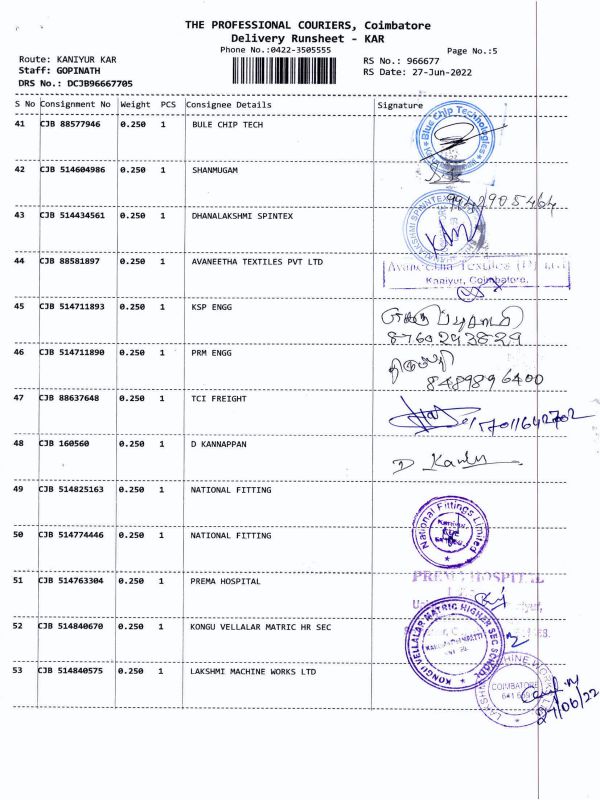 THE PROFESSIONAL COURIERS, Coimbatore
Delivery Runsheet - KAR
Phone No.:0422-3505555
Page No.:5
Route: KANIYUR KAR
RS No.: 966677
Staff: GOPINATH
RS Date: 27-Jun-2022
DRS No.: DCJB96667705
S No Consignment No Weight PCS Consignee Details Signature
41 CJB 88577946 0.250 1 BULE CHIP TECH
Blue Chip Technologies
42 CJB 514604986 0.250 1 SHANMUGAM
9942905464
43 CJB 514434561 0.250 1 DHANALAKSHMI SPINTEX
44 CJB 88581897 0.250 1 AVANEETHA TEXTILES PVT LTD
Avaneetha Textiles (P) Ltd
Kaniyur, Coimbatore.
45 CJB 514711893 0.250 1 KSP ENGG
8760293829
46 CJB 514711890 0.250 1 PRM ENGG
8489896400
47 CJB 88637648 0.250 1 TCI FREIGHT
48 CJB 160560 0.250 1 D KANNAPPAN
49 CJB 514825163 0.250 1 NATIONAL FITTING
National Fittings Limited
50 CJB 514774446 0.250 1 NATIONAL FITTING
51 CJB 514763304 0.250 1 PREMA HOSPITAL
PREMA HOSPITAL
52 CJB 514840670 0.250 1 KONGU VELLALAR MATRIC HR SEC
KONGU VELLALAR MATRIC HIGHER SEC SCHOOL
53 CJB 514840575 0.250 1 LAKSHMI MACHINE WORKS LTD
COIMBATORE
27/06/22